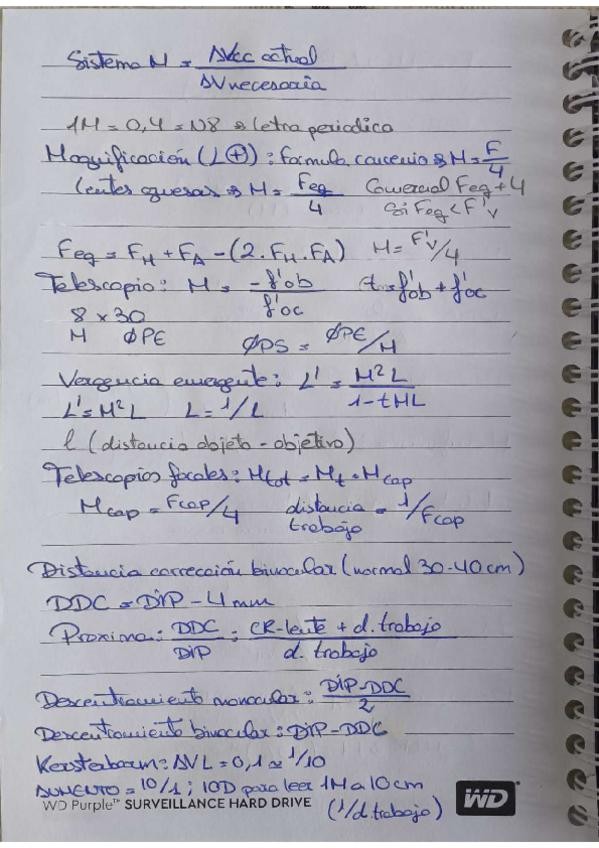 Sistema M = AVcc actual / AV necesaria
1M = 0,4 = N8 → letra periodico
Magnificación (L⊕): fórmula consenso → M = F/4
Lentes gruesas → M = Feq/4 Comercial Feq + 4
Si Feq < F'v
Feq = FH + FA - (2. FH. FA) M = F'v/4
Telescopio: M = -f'ob / f'oc t = f'ob + f'oc
8 x 30
M ØPE ØPS = ØPE/M
Vergencia emergente: L' = M²L / 1-tML
L' = M²L L = 1/l
l (distancia objeto - objetivo)
Telescopios focales: Mtot = Mt · Mcap
Mcap = Fcap/4 distancia trabajo = 1/Fcap
Distancia corrección binocular (normal 30-40cm)
DDC = DIP - 4mm
Proxima: DDC / DIP = CR-lente + d. trabajo / d. trabajo
Descentramiento monocular: DIP-DDC / 2
Descentramiento binocular: DIP-DDC
Kerstenbaum: AVL = 0,1 ≃ 1/10
AUMENTO = 10/1; 10D para leer 1M a 10cm
(1/d.trabajo)
WD Purple™ SURVEILLANCE HARD DRIVE WD